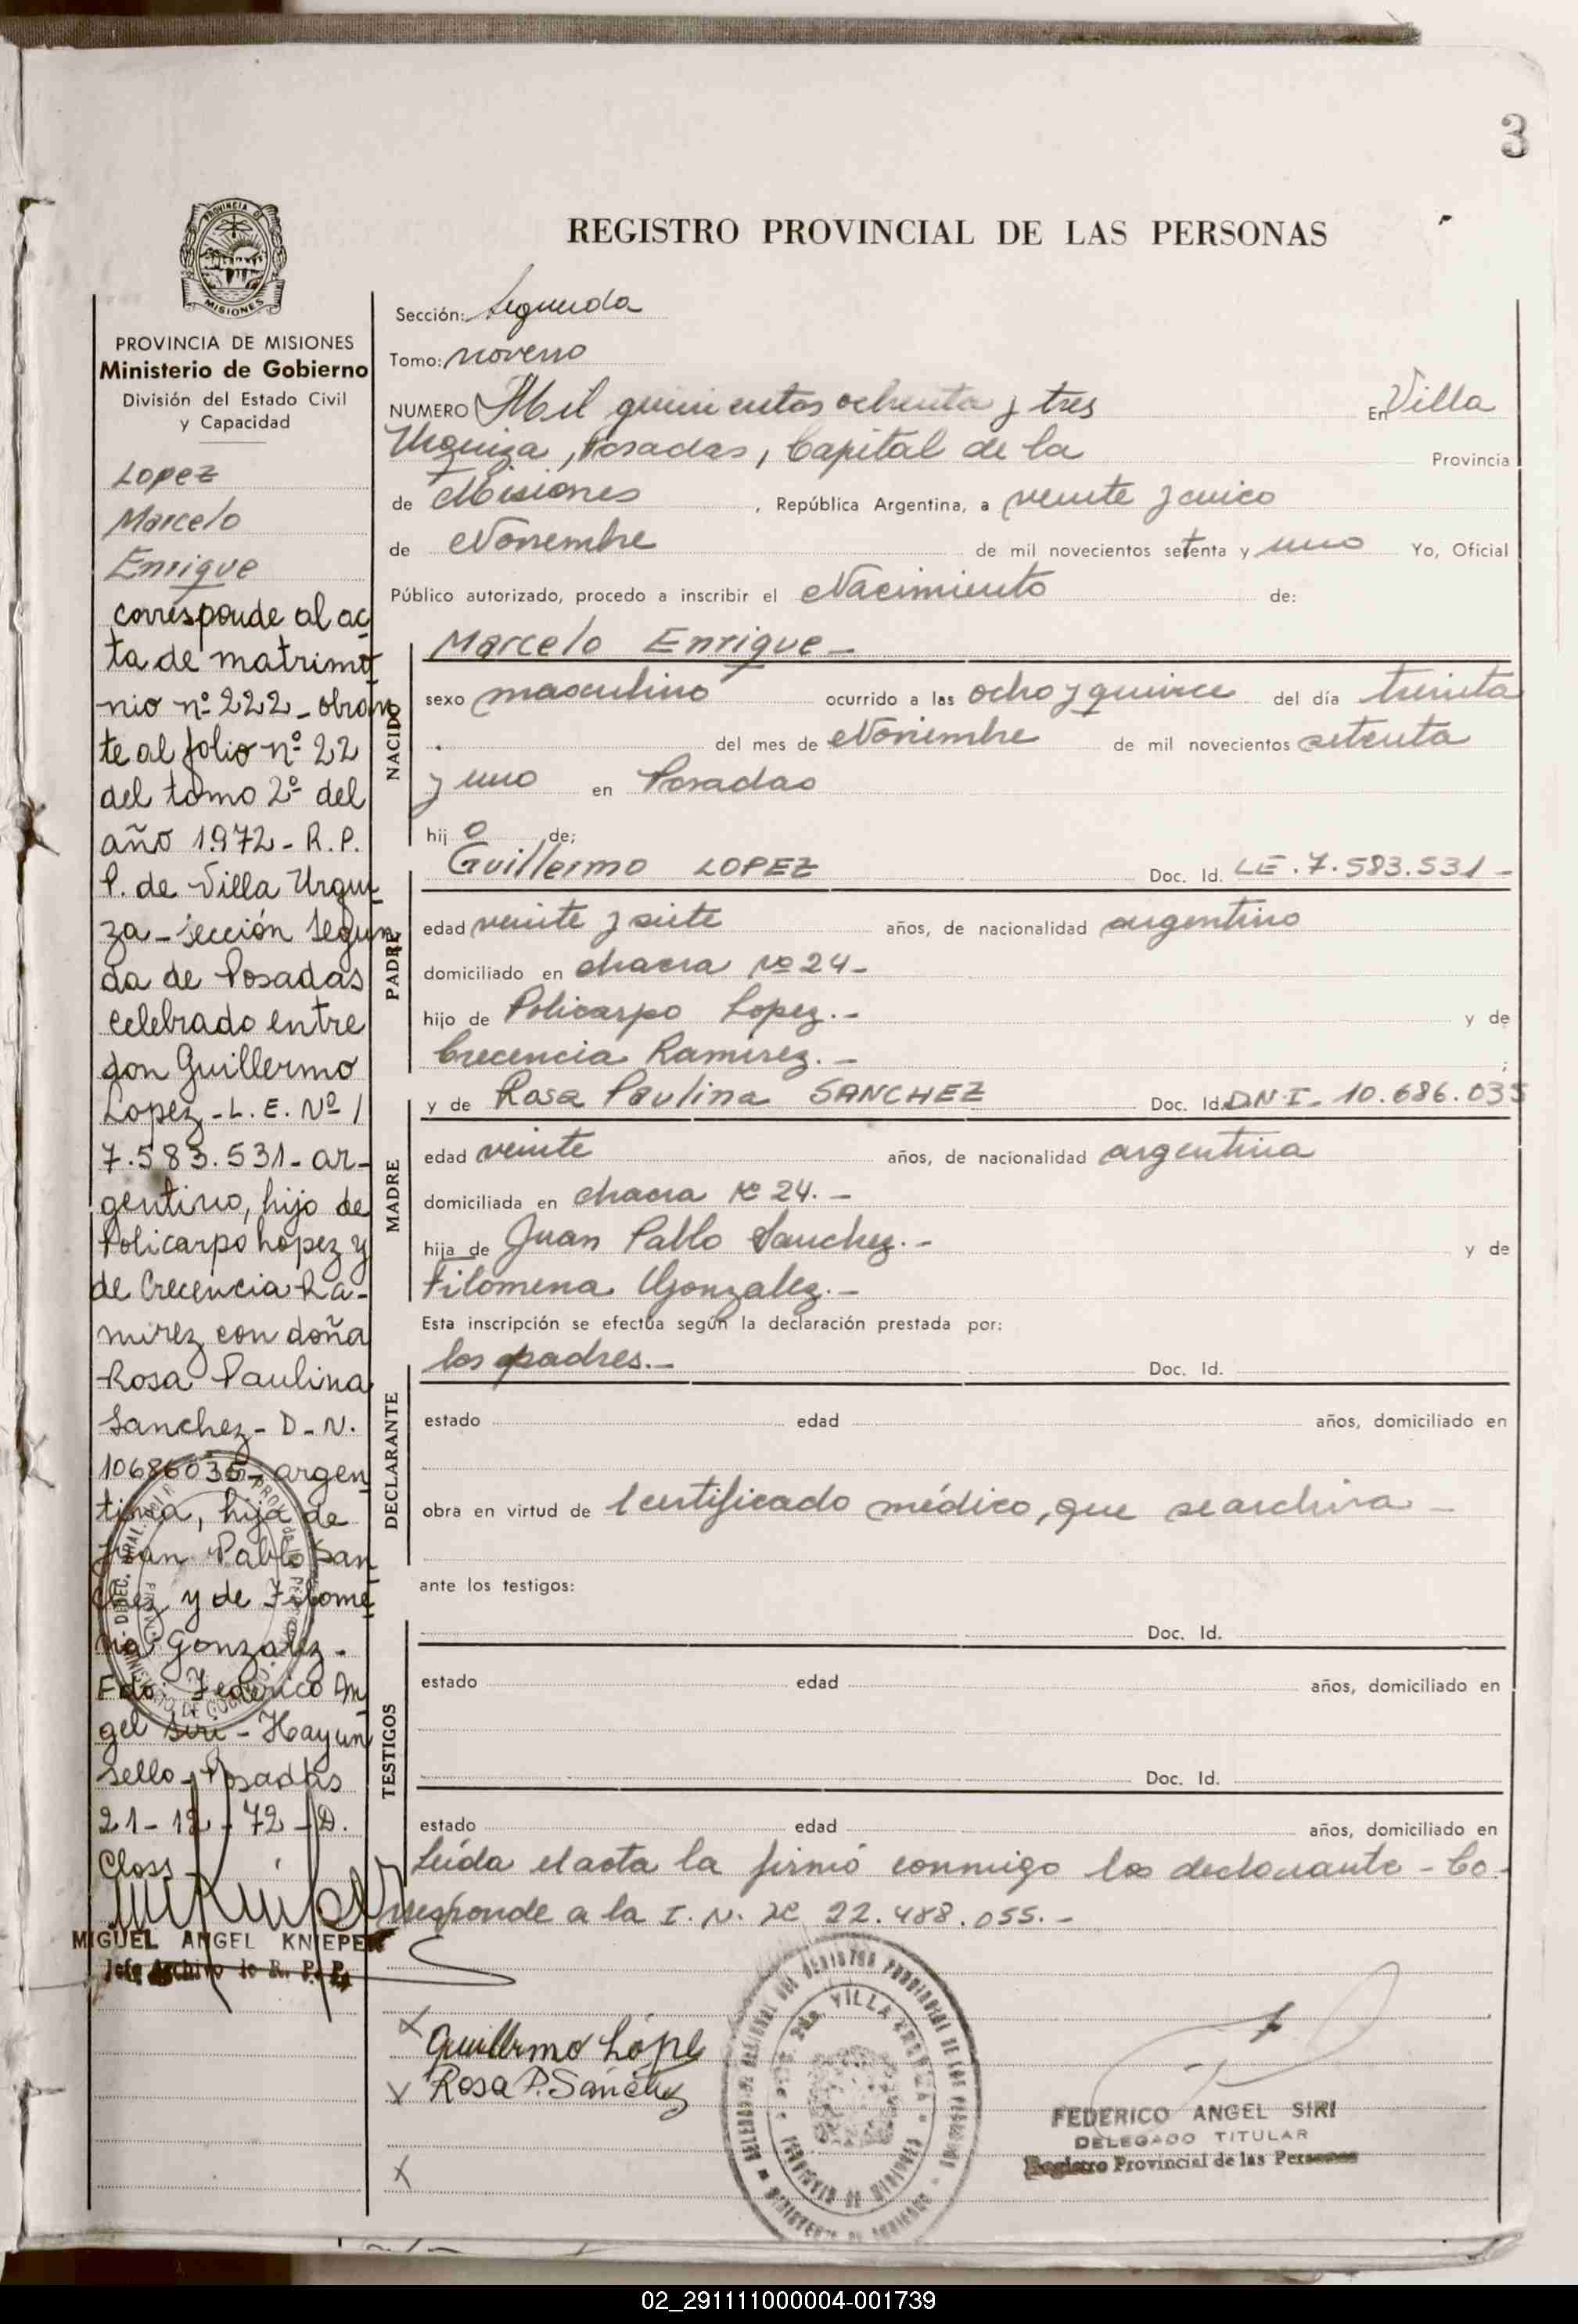 3
REGISTRO PROVINCIAL DE LAS PERSONAS
PROVINCIA DE
MISIONES
PROVINCIA DE MISIONES
Ministerio de Gobierno
División del Estado Civil
y Capacidad
Lopez
Marcelo
Enrique
corresponde al ac
ta de matrimo
nio nº 222 - obran
te al folio nº 22
del tomo 2º del
año 1972 - R. P.
P. de Villa Urqui
za - sección segun
da de Posadas
celebrado entre
don Guillermo
Lopez - L. E. Nº
7.583.531 - ar-
gentino, hijo de
Policarpo Lopez y
de Crecencia Ra-
mirez con doña
Rosa Paulina
Sanchez - D - N.
10686035 - argen
tina, hija de
Juan Pablo San
chez y de Filome
na Gonzalez -
Fdo: Federico An
gel Siri - Hay un
sello - Posadas
21 - 12 - 72 - D.
Closs
MIGUEL ANGEL KNIEPER
Jefe Archivo R. P. P.
Sección: Segunda
Tomo: noveno
NUMERO Mil quinientos ochenta y tres En Villa
Urquiza, Posadas, Capital de la Provincia
de Misiones , República Argentina, a veinte y cinco
de Noviembre de mil novecientos setenta y uno Yo, Oficial
Público autorizado, procedo a inscribir el Nacimiento de:
NACIDO
Marcelo Enrique -
sexo masculino ocurrido a las ocho y quince del día treinta
del mes de Noviembre de mil novecientos setenta
y uno en Posadas
hij o de:
PADRE
Guillermo LOPEZ Doc. Id. LE. 7.583.531 -
edad veinte y siete años, de nacionalidad argentino
domiciliado en chacra Nº 24 -
hijo de Policarpo Lopez. - y de
Crecencia Ramirez. - ;
MADRE
y de Rosa Paulina SANCHEZ Doc. Id. D.N.I. 10.686.035
edad veinte años, de nacionalidad argentina
domiciliada en chacra Nº 24. -
hija de Juan Pablo Sanchez. - y de
Filomena Gonzalez. -
Esta inscripción se efectúa según la declaración prestada por:
DECLARANTE
los padres. - Doc. Id.
estado edad años, domiciliado en
obra en virtud de certificado médico, que se archiva -
ante los testigos:
TESTIGOS
Doc. Id.
estado edad años, domiciliado en
Doc. Id.
estado edad años, domiciliado en
Leída el acta la firmó conmigo los declarante - Co-
rresponde a la I. N. Nº 22.488.055. -
Guillermo Lópe
Rosa P. Sanchez
VILLA URQUIZA
PROVINCIA DE MISIONES
FEDERICO ANGEL SIRI
DELEGADO TITULAR
Registro Provincial de las Personas
02_291111000004-001739